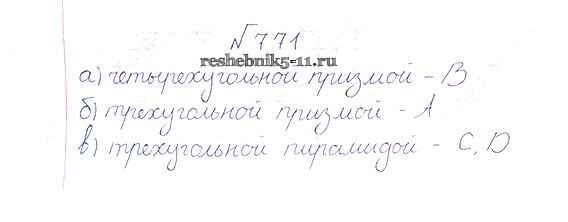 №771
reshebnik5-11.ru
а) четырехугольной призмой - В
б) трехугольной призмой - А
в) трехугольной пирамидой - С, D